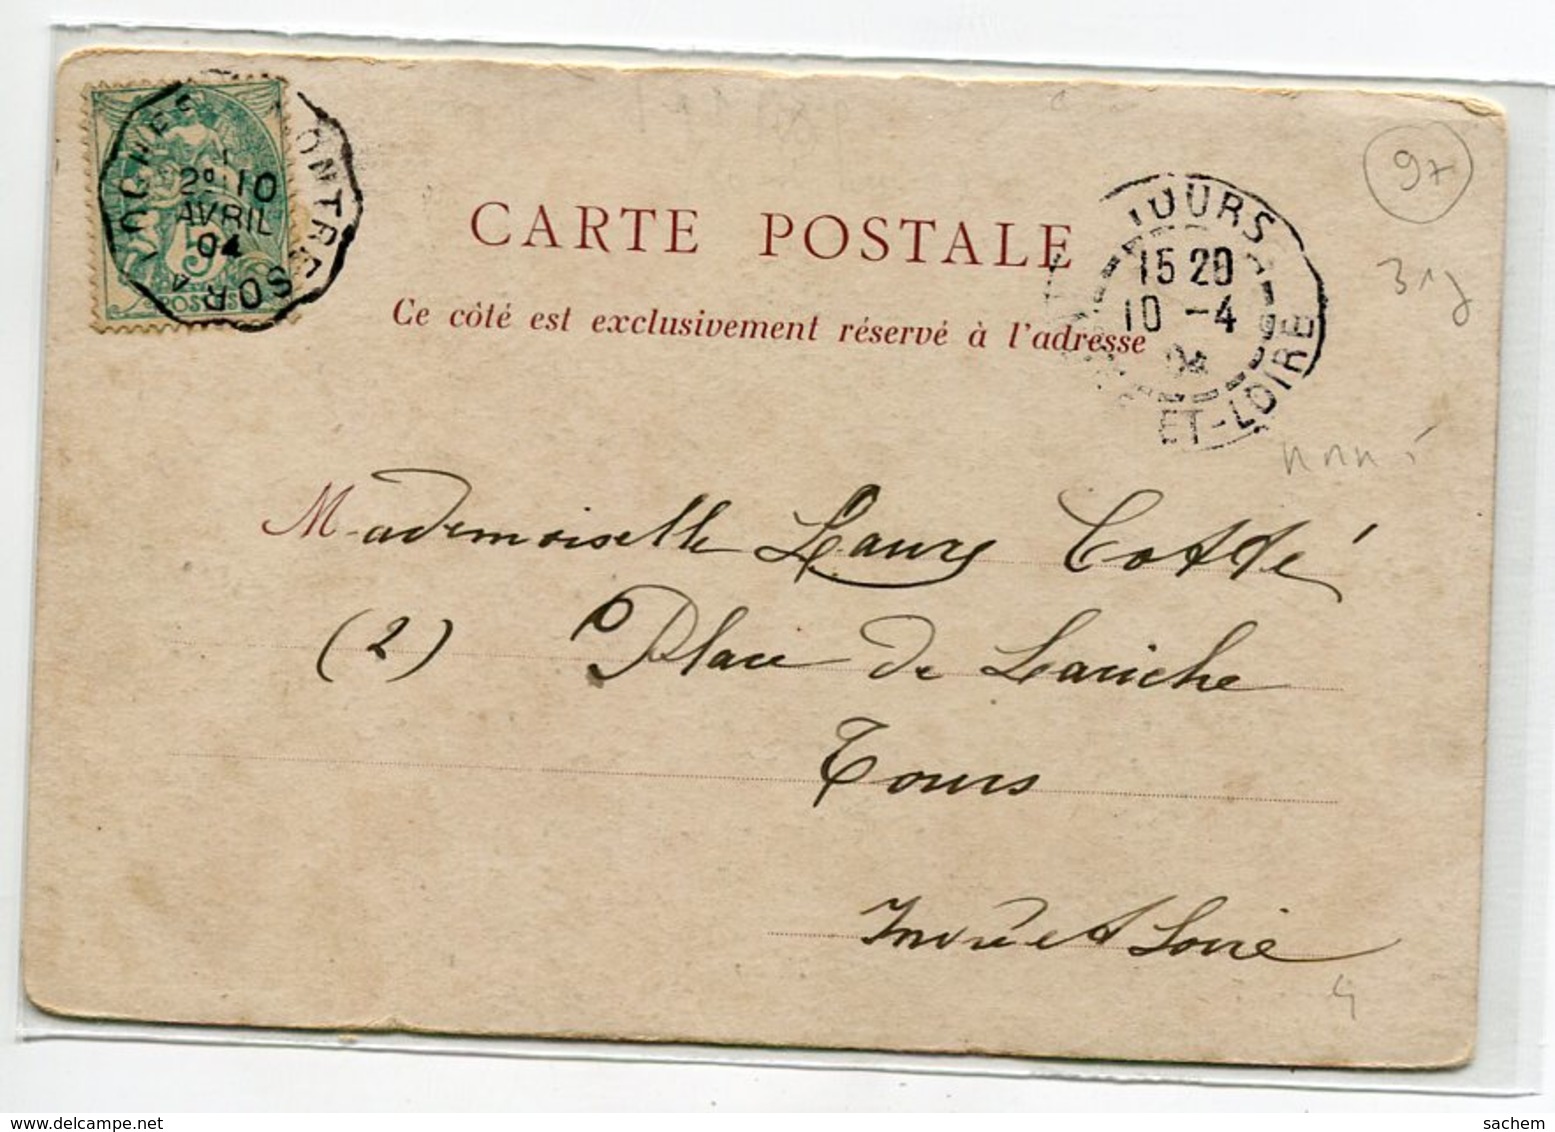 CARTE POSTALE
Ce côté est exclusivement réservé à l'adresse
MONTRESOR
2º 10
AVRIL
04
5
POSTES
TOURS
15 20
10 -4
04
ET-LOIRE
97
Mademoiselle Laure Cotté
(2) Place de Lariche
Tours
Indre et Loire
www.delcampe.net
sachem